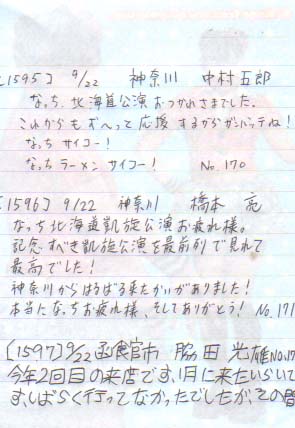 [1595] 9/22 神奈川 中村五郎
なっち、北海道公演おつかれさまでした。
これからもずへって応援するからがンバッテね!
なっち サイコー!
なっち ラーメン サイコー! No.170
[1596] 9/22 神奈川 橋本 亮
なっち北海道凱旋公演お疲れ様。
記念すべき凱旋公演を最前列で見れて
最高でした!
神奈川からはるばる来たかいがありました!
本当になっちお疲れ様、そしてありがとう! No.171
[1597] 9/22 函館市 脇田 光雄 No.17
今年2回目の来店です、1月に来たいらいで
す、しばらく行ってなかったでしたが、その間